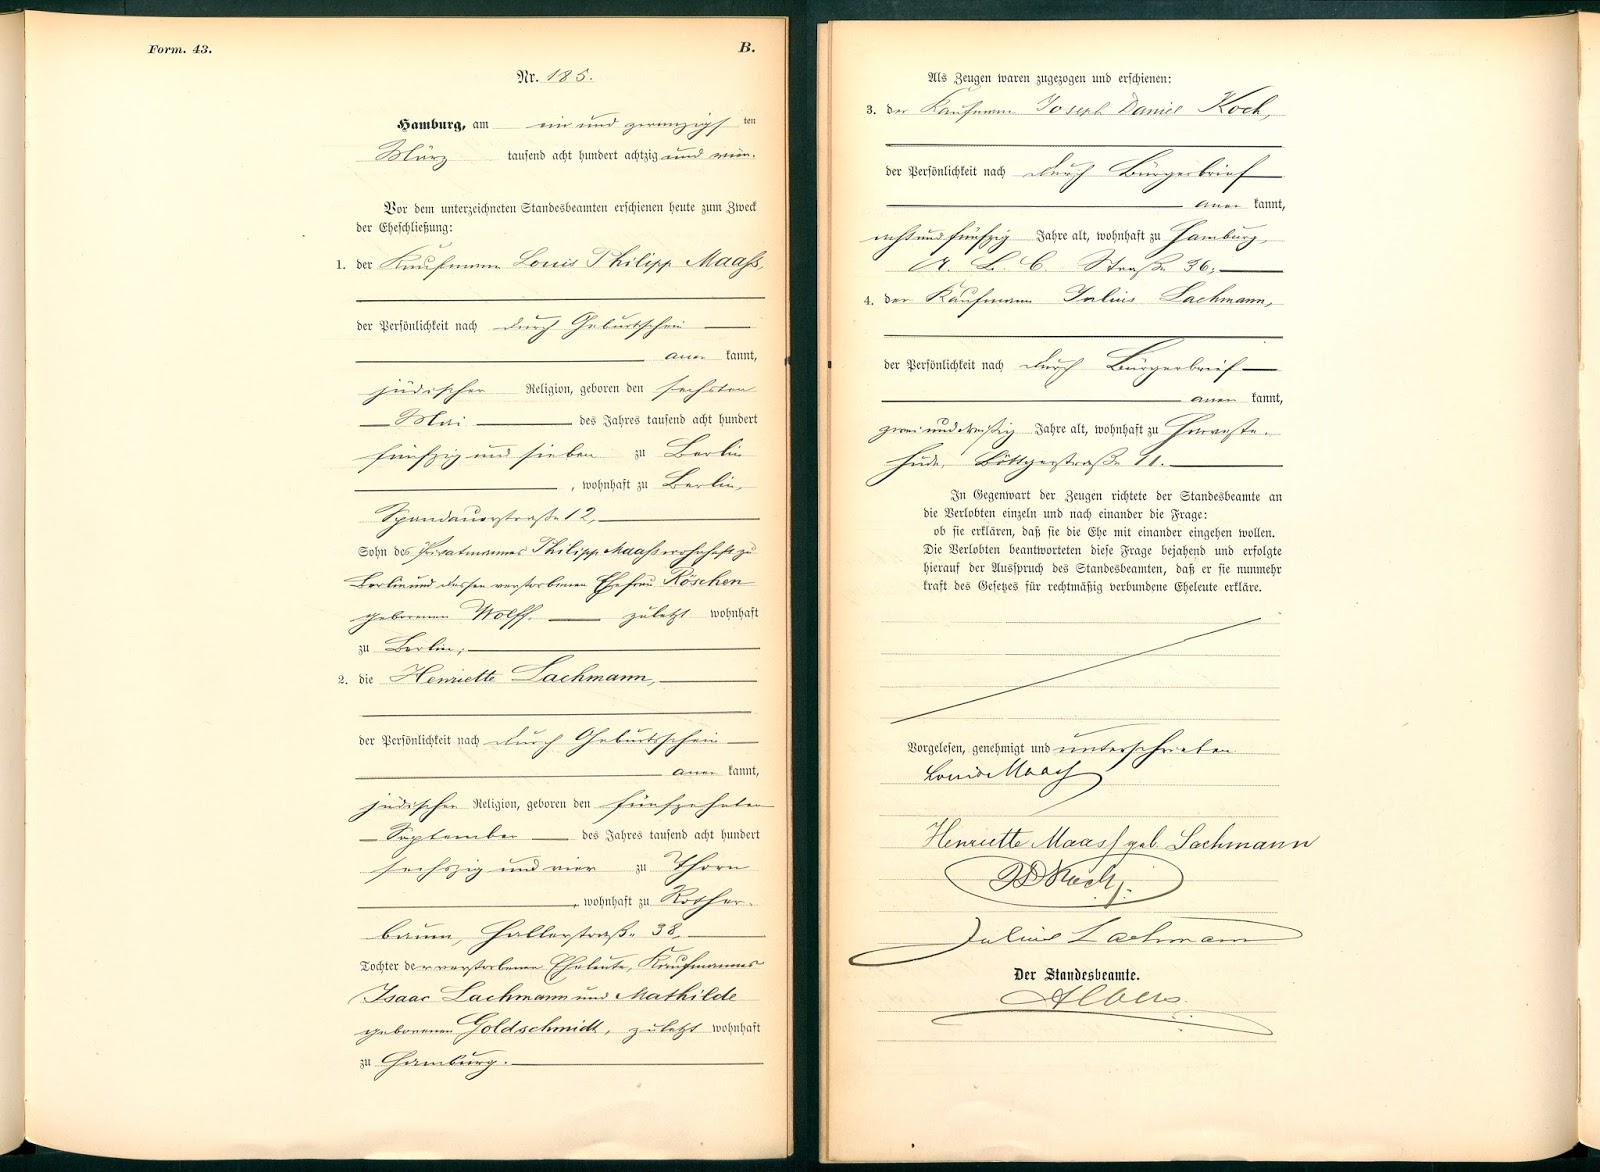 Form. 43.
B.
Nr. 185.
Hamburg, am ein und zwanzigsten
März tausend acht hundert achtzig und neun.
Vor dem unterzeichneten Standesbeamten erschienen heute zum Zweck
der Eheschließung:
1. der Kaufmann Louis Philipp Maaß,
der Persönlichkeit nach durch Geburtsschein
aner kannt,
jüdischer Religion, geboren den sechsten
Mai des Jahres tausend acht hundert
fünfzig und sieben zu Berlin
, wohnhaft zu Berlin,
Spandauerstraße 12,
Sohn des Privatmannes Philipp Maaß wohnhaft zu
Berlin und dessen verstorbenen Ehefrau Röschen
geborenen Wolff. zuletzt wohnhaft
zu Berlin;
2. die Henriette Lachmann,
der Persönlichkeit nach durch Geburtsschein
aner kannt,
jüdischer Religion, geboren den fünfzehnten
September des Jahres tausend acht hundert
sechszig und vier zu Thorn
, wohnhaft zu Rother-
baum, Hallerstraße 38,
Tochter der verstorbenen Eheleute, Kaufmannes
Isaac Lachmann und Mathilde
geborenen Goldschmidt, zuletzt wohnhaft
zu Hamburg.
Als Zeugen waren zugezogen und erschienen:
3. der Kaufmann Joseph Daniel Koch,
der Persönlichkeit nach durch Bürgerbrief
aner kannt,
acht und fünfzig Jahre alt, wohnhaft zu Hamburg,
A. B. C. Straße 36;
4. der Kaufmann Julius Lachmann,
der Persönlichkeit nach durch Bürgerbrief
aner kannt,
zwei und dreißig Jahre alt, wohnhaft zu Harveste-
hude, Böttgerstraße 11.
In Gegenwart der Zeugen richtete der Standesbeamte an
die Verlobten einzeln und nach einander die Frage:
ob sie erklären, daß sie die Ehe mit einander eingehen wollen.
Die Verlobten beantworteten diese Frage bejahend und erfolgte
hierauf der Ausspruch des Standesbeamten, daß er sie nunmehr
kraft des Gesetzes für rechtmäßig verbundene Eheleute erkläre.
Vorgelesen, genehmigt und unterschrieben
Louis Maass
Henriette Maass geb. Lachmann
JD Koch.
Julius Lachmann
Der Standesbeamte.
Albers.